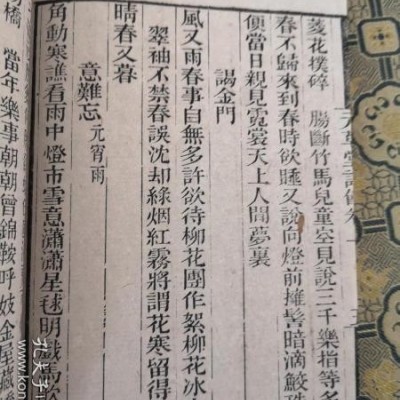 草堂詩餘卷
菱花撲碎 腸斷竹馬兒童空見說三千樂指等多
春不歸來到春時欲睡又說向燈前擁髻暗滴鮫珠
便當日親見霓裳天上人間夢裏
謁金門
風又雨春事自無多許欲待柳花團作絮柳花冰
翠袖不禁春誤沈却綠烟紅霧將謂花寒留得
晴春又暮
意難忘 元宵雨
角動寒譙看雨中燈市雪意瀟瀟星毬明戲馬
橋 當年樂事朝朝曾錦鞍呼妓金屋藏
孔夫子